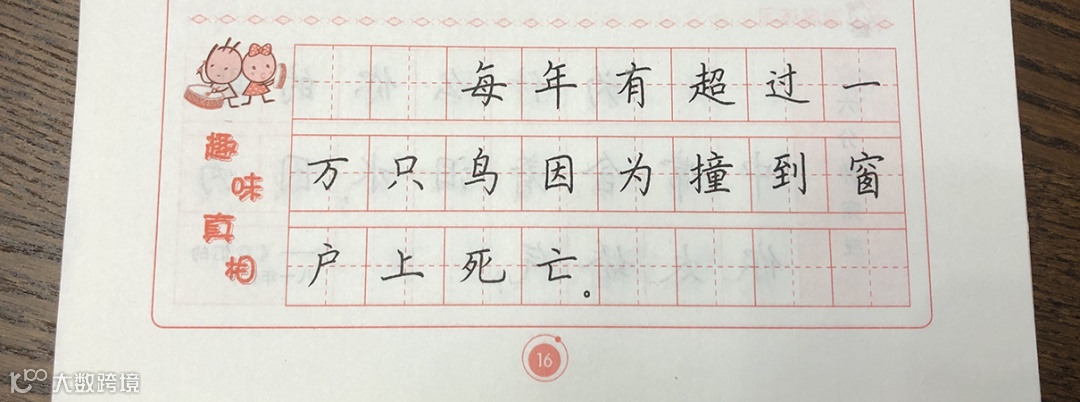 趣味真相
每年有超过一
万只鸟因为撞到窗
户上死亡。
16
大数跨境